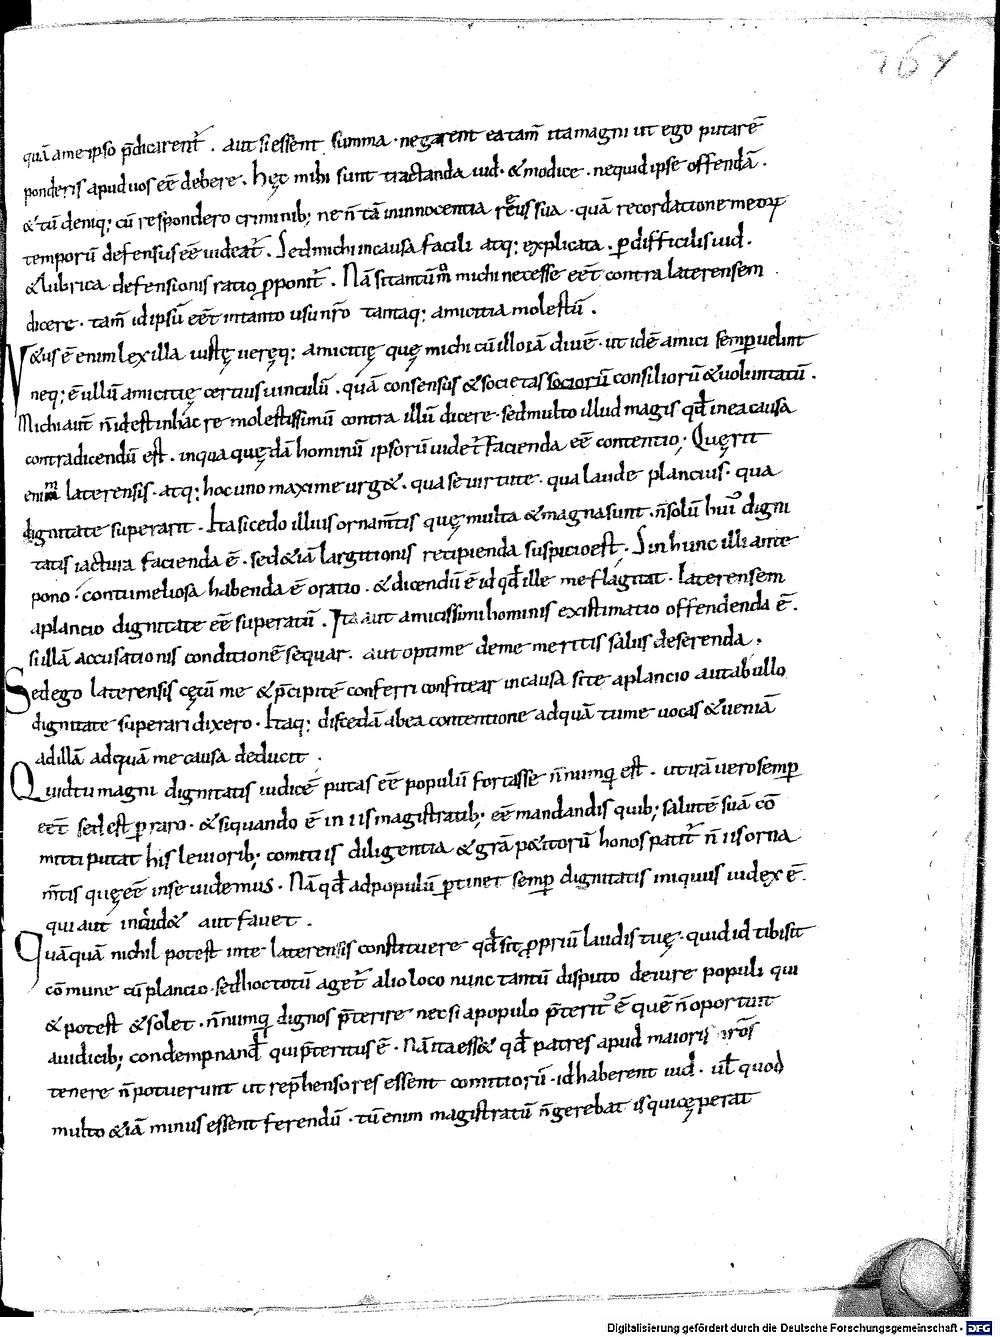 264
quā ame ipso p̄dicarent̄. aut si essent summa · negarent ea tam̄ ita magni ut ego putarē
ponderis apud uos eē debere. hęc mihi sunt tractanda iud. & modice · nequid ipse offendā.
& tū deniq; cū respondero criminib; ne n̄ tā ininnocentia reus sua · quā recordatione meoꝝ
temporū defensus eē uideat̄. Sed michi incausa facili atq; explicata · p̱difficilis uid.
& lubrica defensionis ratio p̱ponit̄. Nā si tantūm̊ michi necesse eēt contra laterensem
dicere · tam̄ id ipsū eēt intanto usu nr̄o tantaq; amicitia molestū.
V&us ē enim lex illa iustę ueręq; amicitię quę michi cū illo iā diu ē · ut idē amici semp̱ uelint
neq; ē ullū amicitię certius uinculū · quā consensus & societas sociorū consiliorū & uoluntatū.
Michi aut̄ n̄ id est inhac re molestissimū contra illū dicere · sed multo illud magis qd̄ inea causa
contradicendū est · inqua quędā hominū ipsorū uidet̄ facienda eē contentio; Quęrit
enim laterensis · atq; hoc uno maxime urg& · qua se uirtute · qua laude plancius · qua
dignitate superarit · Ita si cedo illius ornam̄tis quę multa & magna sunt · n̄ solū hui᾽ digni
tatis iactura facienda ē · sed & iā largitionis recipienda suspicio est · Sin hunc illi ante
pono · contumeliosa habenda ē oratio · & dicendū ē id qd̄ ille me flagitat · laterensem
aplancio dignitate eē superatū. Ita aut amicissimi hominis existimatio offendenda ē.
si illā accusationis conditionē sequar. aut optime deme meritis salus deserenda.
Sed ego laterensis cęcū me & p̄cipitē conferri confitear incausa si te aplancio aut ab ullo
dignitate superari dixero · Itaq; discedā abea contentione ad quā tu me uocas & ueniā
ad illā ad quā me causa deducit.
Quid tu magni dignitatis iudicē putas eē populū fortasse n̄numq̄ est · utinā uero semp̱
eēt sed est p̱raro · & si quando ē in iis magistratib; eē mandandis quib; salutē suā cō
mitti putat his leuiorib; comitiis diligentia & grā p&itorū honos patit̄ n̄ iis orna
m̄tis quę eē inse uidemus · Nā qd̄ ad populū p̱tinet semp̱ dignitatis iniquus iudex ē.
qui aut inuid& aut fauet.
Quāquā nichil potest inte laterensis constituere qd̄ sit p̱priū laudis tuę · quid id tibi sit
cōmune cū plancio · sed hoc totū aget̄ alio loco nunc tantū disputo deiure populi qui
& potest & solet · n̄numq̄ dignos p̄terire nec si apopulo p̄terit᾽ ē quē n̄ oportuit
aiudicib; condempnand᾽ qui p̄teritus ē · Nā ita ess& qd̄ patres apud maiores nr̄os
tenere n̄ potuerunt ut rep̄hensores essent comitiorū · id haberent iud. ul̄ quod
multo & iā minus essent ferendū · tū enim magistratū n̄ gerebat is qui cęperat
Digitalisierung gefördert durch die Deutsche Forschungsgemeinschaft - DFG